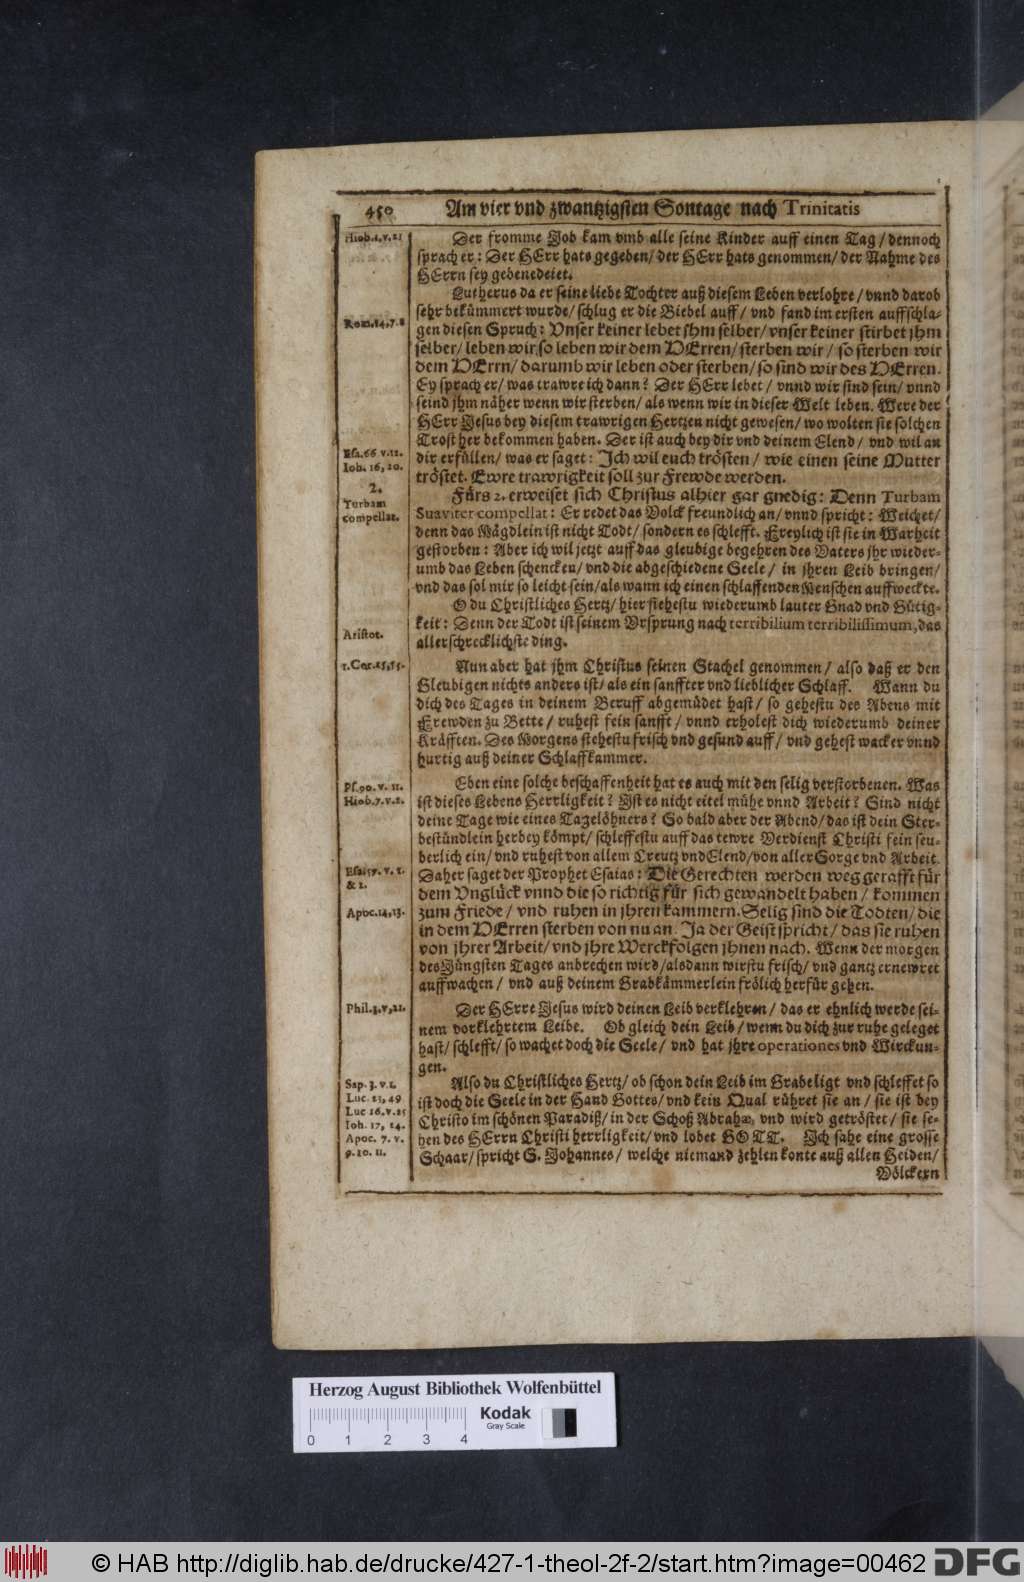 450 Am vier vnd zwantzigsten Sontage nach Trinitatis
Hiob.1.v.21
Der fromme Job kam vmb alle seine Kinder auff einen Tag/ dennoch
sprach er: Der HErr hats gegeben/ der HErr hats genommen/ der Nahme des
HErrn sey gebenedeiet.
Lutherus da er seine liebe Tochter auß diesem Leben verlohre/ vnnd darob
sehr bekümmert wurde/ schlug er die Biebel auff/ vnd fand im ersten auffschla-
Rom.14,7.8
gen diesen Spruch: Vnser keiner lebet jhm selber/ vnser keiner stirbet jhm
selber/ leben wir, so leben wir dem HErren/ sterben wir/ so sterben wir
dem HErrn/ darumb wir leben oder sterben/ so sind wir des HErren.
Ey sprach er/ was trawre ich dann? Der HErr lebet/ vnnd wir sind sein/ vnnd
seind jhm näher wenn wir sterben/ als wenn wir in dieser Welt leben. Were der
HErr Jesus bey diesem trawrigen Hertzen nicht gewesen/ wo wolten sie solchen
Trost her bekommen haben. Der ist auch bey dir vnd deinem Elend/ vnd wil an
Esa.66 v.12.
dir erfüllen/ was er saget: Ich wil euch trösten/ wie einen seine Mutter
Ioh. 16, 20.
tröstet. Ewre trawrigkeit soll zur Frewde werden.
2.
Turbam
compellat.
Fürs 2. erweiset sich Christus alhier gar gnedig: Denn Turbam
Suaviter compellat: Er redet das Volck freundlich an/ vnnd spricht: Weichet/
denn das Mägdlein ist nicht Todt/ sondern es schlefft. Freylich ist sie in Warheit
gestorben: Aber ich wil jetzt auff das gleubige begehren des Vaters jhr wieder-
umb das Leben schencken/ vnd die abgeschiedene Seele/ in jhren Leib bringen/
vnd das sol mir so leicht sein/ als wann ich einen schlaffenden Menschen auffweckte.
O du Christliches Hertz/ hier siehestu wiederumb lauter Gnad vnd Gütig-
Aristot.
keit: Denn der Todt ist seinem Vrsprung nach terribilium terribilissimum, das
allerschrecklichste ding.
1.Cor.15,55.
Nun aber hat jhm Christus seinen Stachel genommen/ also daß er den
Gleubigen nichts anders ist/ als ein sanffter vnd lieblicher Schlaff. Wann du
dich des Tages in deinem Beruff abgemüdet hast/ so gehestu des Abens mit
Frewden zu Bette/ ruhest fein sanfft/ vnnd erholest dich wiederumb deiner
Kräfften. Des Morgens stehestu frisch vnd gesund auff/ vnd gehest wacker vnnd
hurtig auß deiner Schlaffkammer.
Ps.90. v. 11.
Hiob.7.v.2.
Eben eine solche beschaffenheit hat es auch mit den selig verstorbenen. Was
ist dieses Lebens Herrligkeit? Ist es nicht eitel mühe vnnd Arbeit? Sind nicht
deine Tage wie eines Tagelöhners? So bald aber der Abend/ das ist dein Ster-
bestündlein herbey kömpt/ schleffestu auff das tewre Verdienst Christi fein seu-
berlich ein/ vnd ruhest von allem Creutz vnd Elend/ von aller Sorge vnd Arbeit.
Esai.57. v. 1.
& 2.
Daher saget der Prophet Esaias: Die Gerechten werden weggerafft für
dem Vnglück vnnd die so richtig für sich gewandelt haben/ kommen
Apoc.14,13.
zum Friede/ vnd ruhen in jhren kammern. Selig sind die Todten/ die
in dem HErren sterben von nu an. Ja der Geist spricht/ das sie ruhen
von jhrer Arbeit/ vnd jhre Werck folgen jhnen nach. Wenn der morgen
des Jüngsten Tages anbrechen wird/ alsdann wirstu frisch/ vnd gantz ernewret
auffwachen/ vnd auß deinem Grabkämmerlein frölich herfür gehen.
Phil.3.v,21.
Der HErre Jesus wird deinen Leib verklehren/ das er ehnlich werde sei-
nem vorklehrtem Leibe. Ob gleich dein Leib/ wenn du dich zur ruhe geleget
hast/ schlefft/ so wachet doch die Seele/ vnd hat jhre operationes vnd Wirckun-
gen.
Sap. 3. v.1.
Luc. 23, 49
Luc 16.v.25
Ioh. 17, 24.
Apoc. 7. v.
9.10. 11.
Also du Christliches Hertz/ ob schon dein Leib im Grabe ligt vnd schleffet so
ist doch die Seele in der Hand Gottes/ vnd kein Qual rühret sie an/ sie ist bey
Christo im schönen Paradiß/ in der Schoß Abrahæ, vnd wird getröstet/ sie se-
hen des HErrn Christi herrligkeit/ vnd lobet GOTT. Ich sahe eine grosse
Schaar/ spricht S. Johannes/ welche niemand zehlen konte auß allen Heiden/
Völckern
Herzog August Bibliothek Wolfenbüttel
Kodak
Gray Scale
0 1 2 3 4
© HAB http://diglib.hab.de/drucke/427-1-theol-2f-2/start.htm?image=00462 DFG